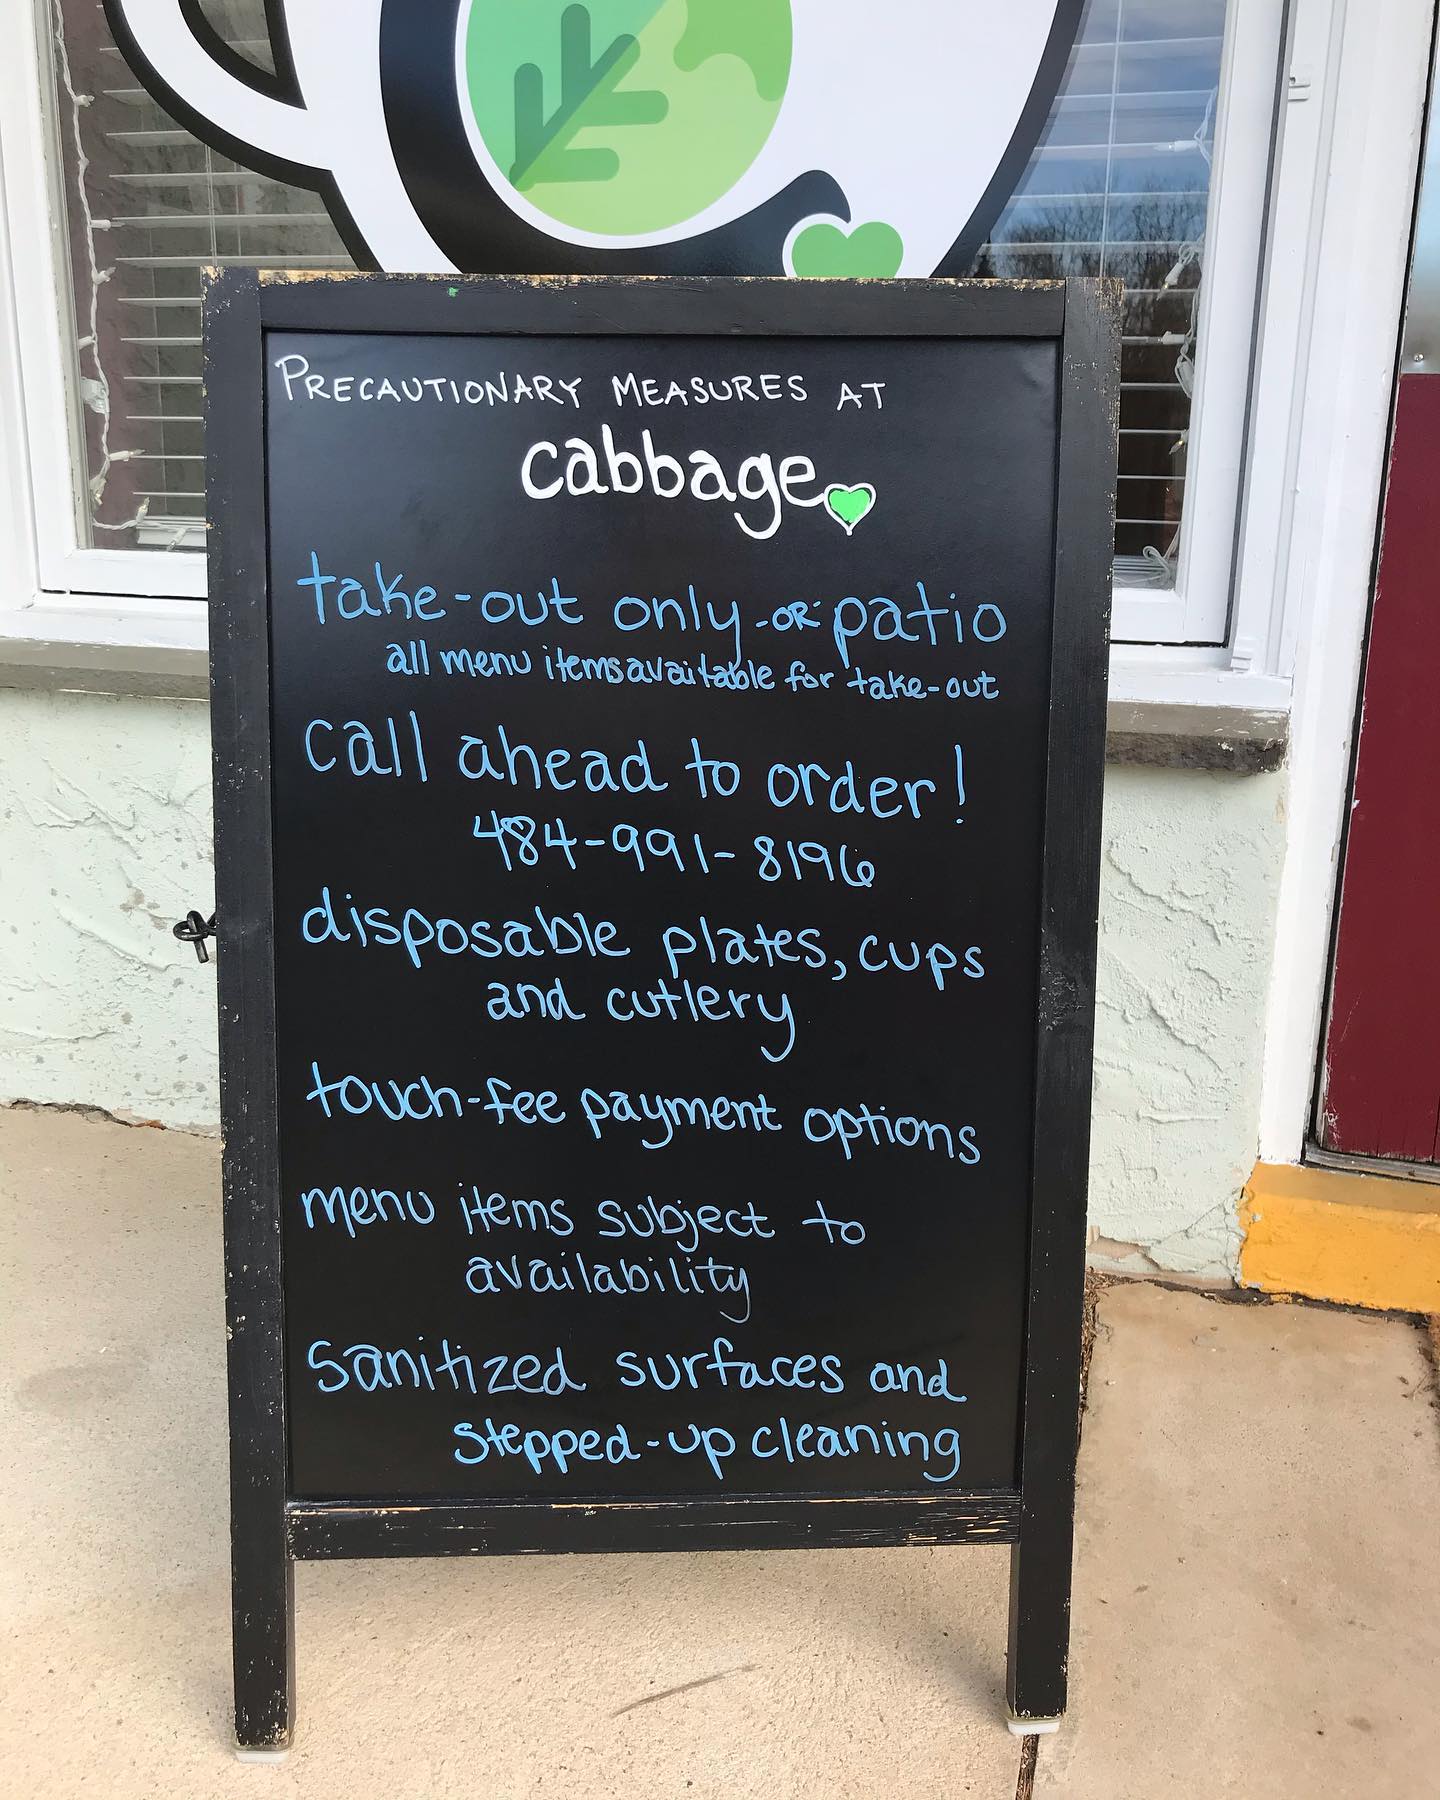 PRECAUTIONARY MEASURES AT
cabbage
take-out only -OR- patio
all menu items available for take-out
call ahead to order!
484-991-8196
disposable plates, cups
and cutlery
touch-fee payment options
menu items subject to
availability
sanitized surfaces and
stepped-up cleaning